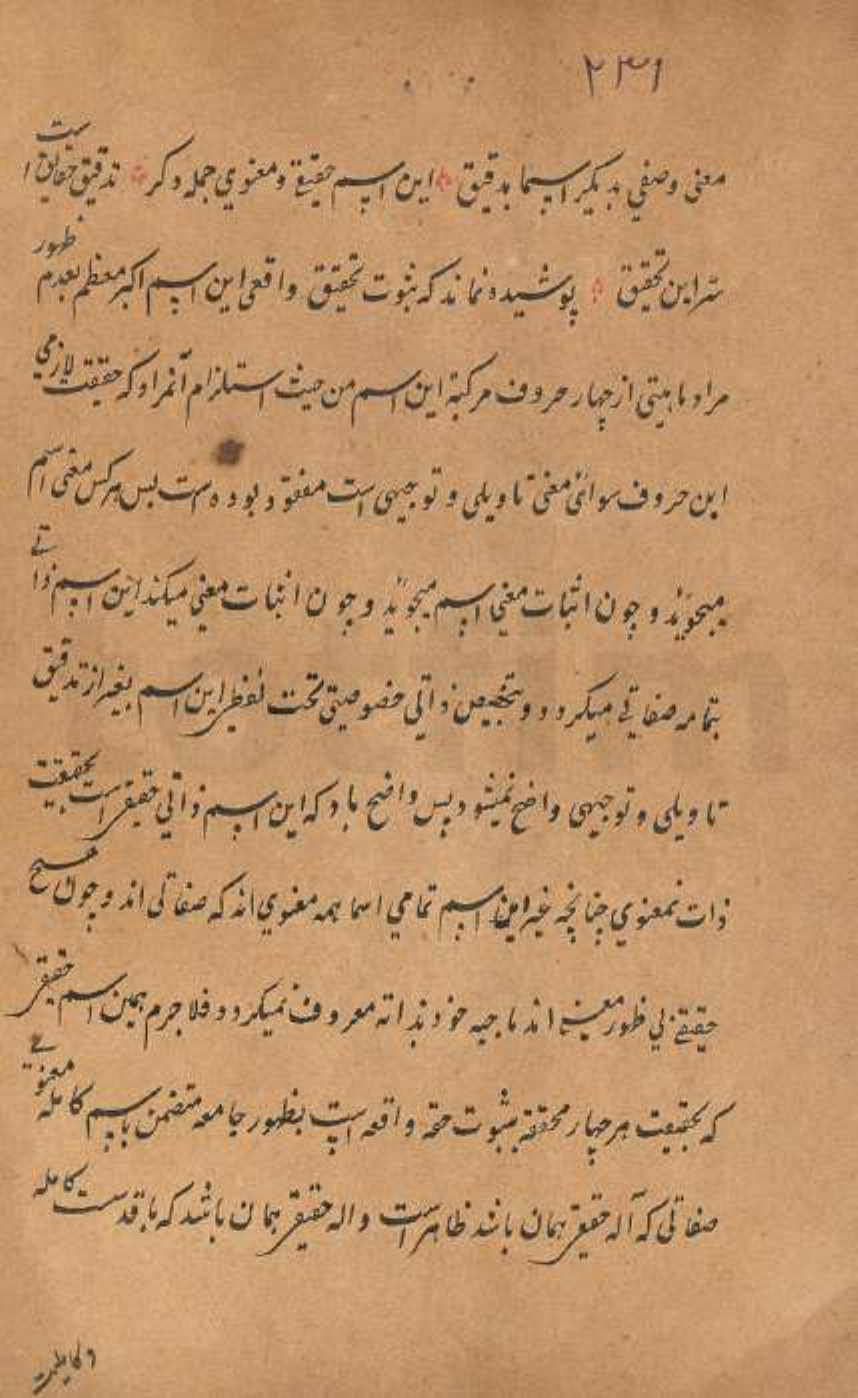 ۲۳۱
معنی وصفی بدیگر اسما بدقیق این اسم حقیقی و معنوی جمله دگر تدقیق حقایق است
سرّ این تحقیق پوشیده نماند که ثبوت تحقیق واقعی این اسم اکبر معظم بعدم ظهور
مراد ماهیتی از چهار حروف مرکبهٔ این اسم من حیث استلزام آنمراد که حقیقت لازمی
این حروف سوائی معنی تاویلی و توجیهی است مفقود بوده است پس هرکس معنی اسم
میجوید و چون اثبات معنی اسم میجوید و چون اثبات معنی میکند این اسم ذاتی
بتمامه صفاتی میگردد و بتخصیص ذاتی خصوصیتی تحت لفظ این اسم بغیر از تدقیق
تاویلی و توجیهی واضح نمیشود پس واضح باد که این اسم ذاتی حقیقی است بحقیقت
ذات نمعنوی چنانچه غیر این اسم تمامی اسما همه معنوی اند که صفاتی اند و چون
حقیقی بی ظهور اند خود بذاته معروف نمیگردد فلاجرم همین اسم حقیقی
که بحقیقت هر چهار محققه بثبوت حقه واقعه است بظهور جامعه متضمن باسم کامله معنوی
صفاتی که آله حقیقی همان باشد ظاهر است و اله حقیقی همان باشد که باقدست کامله